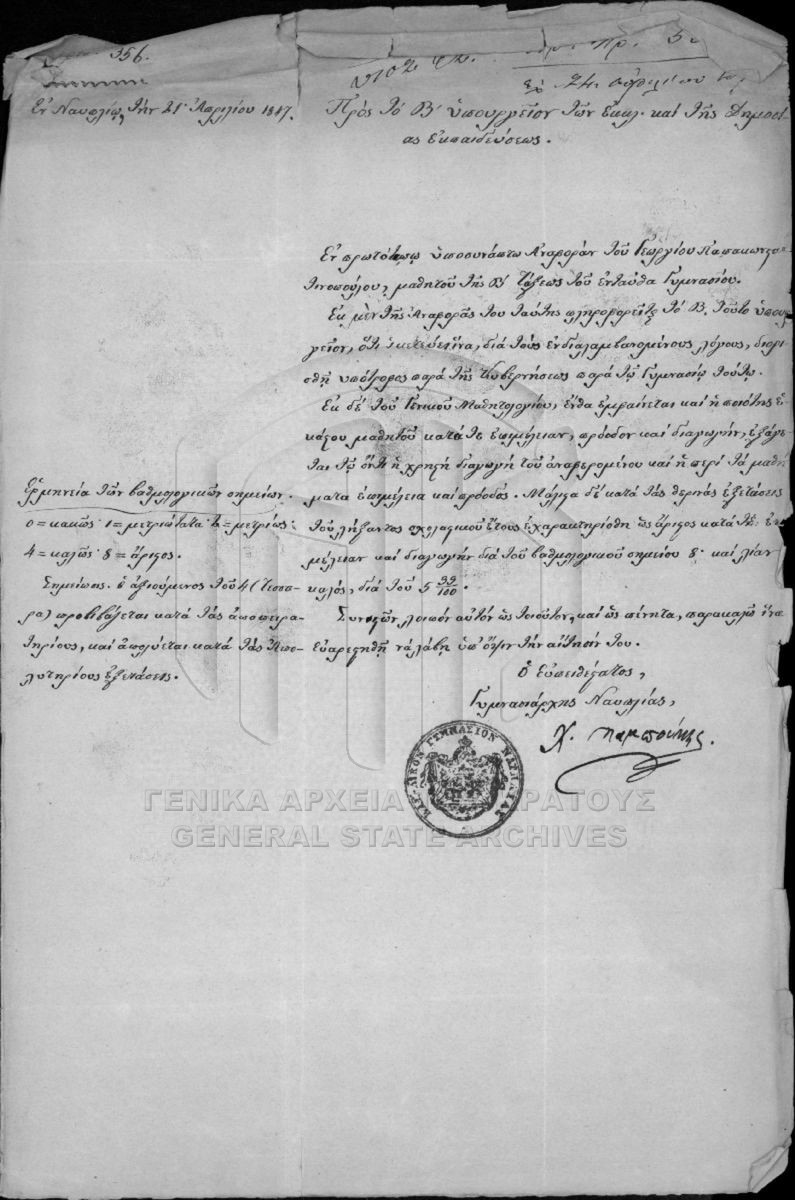 356.
Ἐν Ναυπλίῳ τὴν 21 Ἀπριλίου 1847.
Πρὸς τὸ Β. ὑπουργεῖον τῶν Ἐκκλ. καὶ τῆς Δημοσί-
ας ἐκπαιδεύσεως.
Ἐν πρωτοτύπῳ ὑποσυνάπτω Ἀναφορὰν τοῦ Γεωργίου Παπακωνσταν-
τινοπούλου, μαθητοῦ τῆς Β΄ τάξεως τοῦ ἐνταῦθα Γυμνασίου.
Ἐκ μὲν τῆς Ἀναφορᾶς του ταύτης πληροφορεῖται τὸ Β. τοῦτο ὑπουρ-
γεῖον, ὅτι ἱκετεύει ἵνα, διὰ τοὺς ἐνδιαλαμβανομένους λόγους, διορι-
σθῇ ὑπότροφος παρὰ τῆς Κυβερνήσεως παρὰ τῷ Γυμνασίῳ τούτῳ.
Ἐκ δὲ τοῦ Γενικοῦ Μαθητολογίου, ἔνθα ἐμφαίνεται καὶ ἡ ποιότης ἑ-
κάστου μαθητοῦ κατά τε ἐπιμέλειαν, πρόοδον καὶ διαγωγὴν, ἐξάγε-
ται τῷ ὄντι ἡ χρηστὴ διαγωγὴ τοῦ ἀναφερομένου καὶ ἡ περὶ τὰ μαθή-
ματα ἐπιμέλεια καὶ πρόοδος. Μάλιστα δὲ κατὰ τὰς θερινὰς ἐξετάσεις
τοῦ λήξαντος σχολαστικοῦ ἔτους ἐχαρακτηρίσθη ὡς ἄριστος κατά τε ἐπι-
μέλειαν καὶ διαγωγὴν διὰ τοῦ βαθμολογικοῦ σημείου 8 καὶ λίαν
καλὸς, διὰ τοῦ 5 99/100.
Συνιστῶν λοιπὸν αὐτὸν ὡς τοιοῦτον, καὶ ὡς πένητα, παρακαλῶ ἵνα
εὐαρεστηθῇ νὰ λάβῃ ὑπ' ὄψιν τὴν αἴτησίν του.
Ὁ Εὐπειθέστατος,
Γυμνασιάρχης Ναυπλίας,
Χ. Παμπούκης.
Ἑρμηνεία τῶν βαθμολογικῶν σημείων.
0 = κακῶς· 1 = μετριώτατα· 2 = μετρίως·
4 = καλῶς· 8 = ἄριστος.
Σημείωσις. ὁ ἀξιούμενος τοῦ 4 (τεσσα-
ρα) προβιβάζεται κατὰ τὰς ἀποπειρα-
τηρίους, καὶ ἀπολύεται κατὰ τὰς Ἀπο-
λυτηρίους ἐξετάσεις.
ΓΥΜΝΑΣΙΟΝ ΝΑΥΠΛΙΑΣ
ΓΕΝΙΚΑ ΑΡΧΕΙΑ ΤΟΥ ΚΡΑΤΟΥΣ
GENERAL STATE ARCHIVES